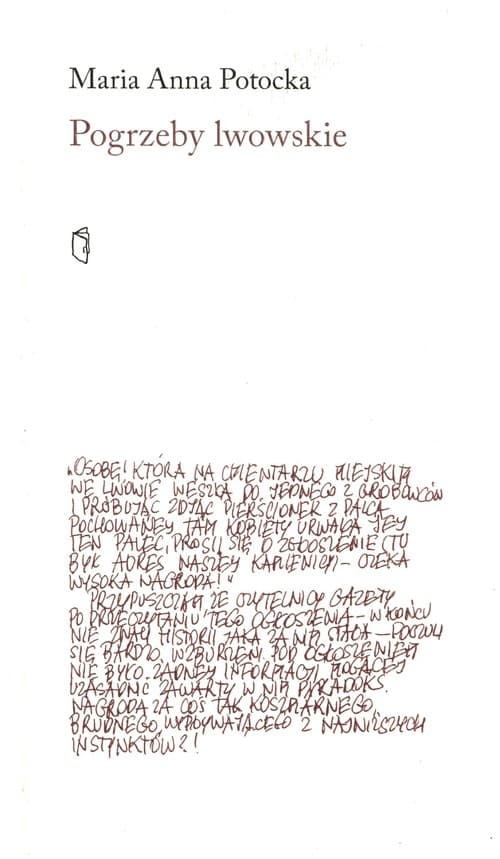 Maria Anna Potocka
Pogrzeby lwowskie
„OSOBĘ, KTÓRA NA CMENTARZU MIEJSKIM
WE LWOWIE WESZŁA DO JEDNEGO Z GROBOWCÓW
I PRÓBUJĄC ZDJĄĆ PIERŚCIONEK Z PALCA
POCHOWANEJ TAM KOBIETY URWAŁA JEJ
TEN PALEC, PROSI SIĘ O ZGŁOSZENIE (TU
BYŁ ADRES NASZEJ KAMIENICY) – CZEKA
WYSOKA NAGRODA!"
PRZYPUSZCZAM, ŻE CZYTELNICY GAZETY
PO PRZECZYTANIU TEGO OGŁOSZENIA – W KOŃCU
NIE ZNALI HISTORII, JAKA ZA NIM STAŁA – POCZULI
SIĘ BARDZO WZBURZENI. POD OGŁOSZENIEM
NIE BYŁO ŻADNEJ INFORMACJI, MOGĄCEJ
UZASADNIĆ ZAWARTY W NIM PARADOKS.
NAGRODA ZA COŚ TAK KOSZMARNEGO,
BRUDNEGO, WYPŁYWAJĄCEGO Z NAJNIŻSZYCH
INSTYNKTÓW?!